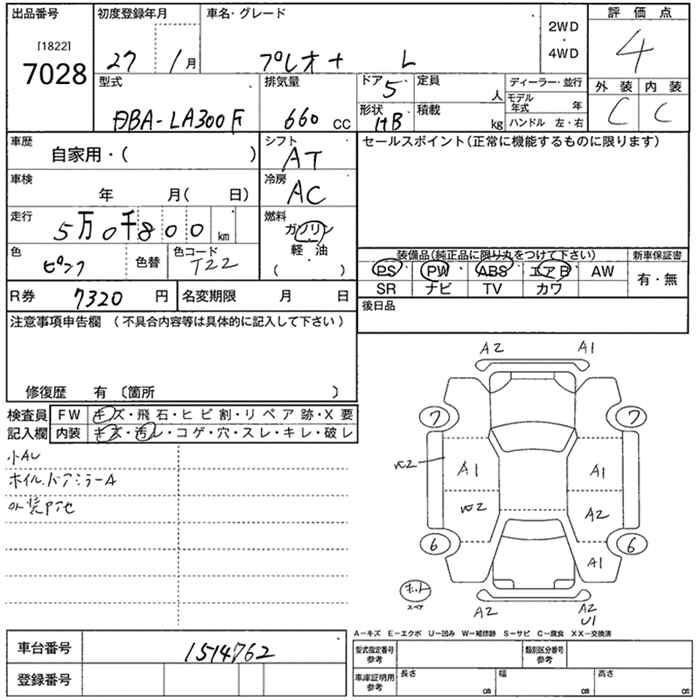 出品番号 初度登録年月 車名・グレード 2WD・4WD 評価点
［1822］ 7028 27 1月 プレオ+ L 4
型式 排気量 ドア 5 定員 人 ディーラー・並行 外装 内装
DBA-LA300F 660 CC 形状 HB 積載 kg モデル年式 年 C C
ハンドル 左・右
車歴 自家用・( ) シフト AT セールスポイント(正常に機能するものに限ります)
車検 年 月( 日) 冷房 AC
走行 5万0千800 km 燃料 ガソリン・軽・油 ( )
色 ピンク 色替 色コード T22
装備品(純正品に限り丸をつけて下さい) 新車保証書
PS PW ABS エアB AW 有・無
SR ナビ TV カワ
R券 7320 円 名変期限 月 日 後日品
注意事項申告欄 （不具合内容等は具体的に記入して下さい）
修復歴 有〔箇所 〕
検査員 FW キズ・飛石・ヒビ割・リペア跡・X要
記入欄 内装 キズ・汚レ・コゲ・穴・スレ・キレ・破レ
小AU
ホイル、ドアミラーA
A2 A1
7 7
W2 A1 A1
W2 A2
6 6
A1
ホット
スペア
A2 A2
U1
A－キズ E－エクボ U－凹み W－補修跡 S－サビ C－腐食 XX－交換済
車台番号 1514762 型式指定番号 参考 類別区分番号 参考
登録番号 車庫証明用 参考 長さ cm 幅 cm 高さ cm